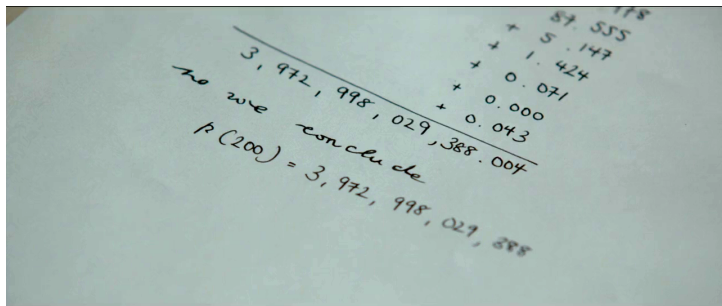 87.555
+ 5.147
+ 1.424
+ 0.071
+ 0.000
+ 0.043
3,972,998,029,388.004
so we conclude
p(200) = 3,972,998,029,388